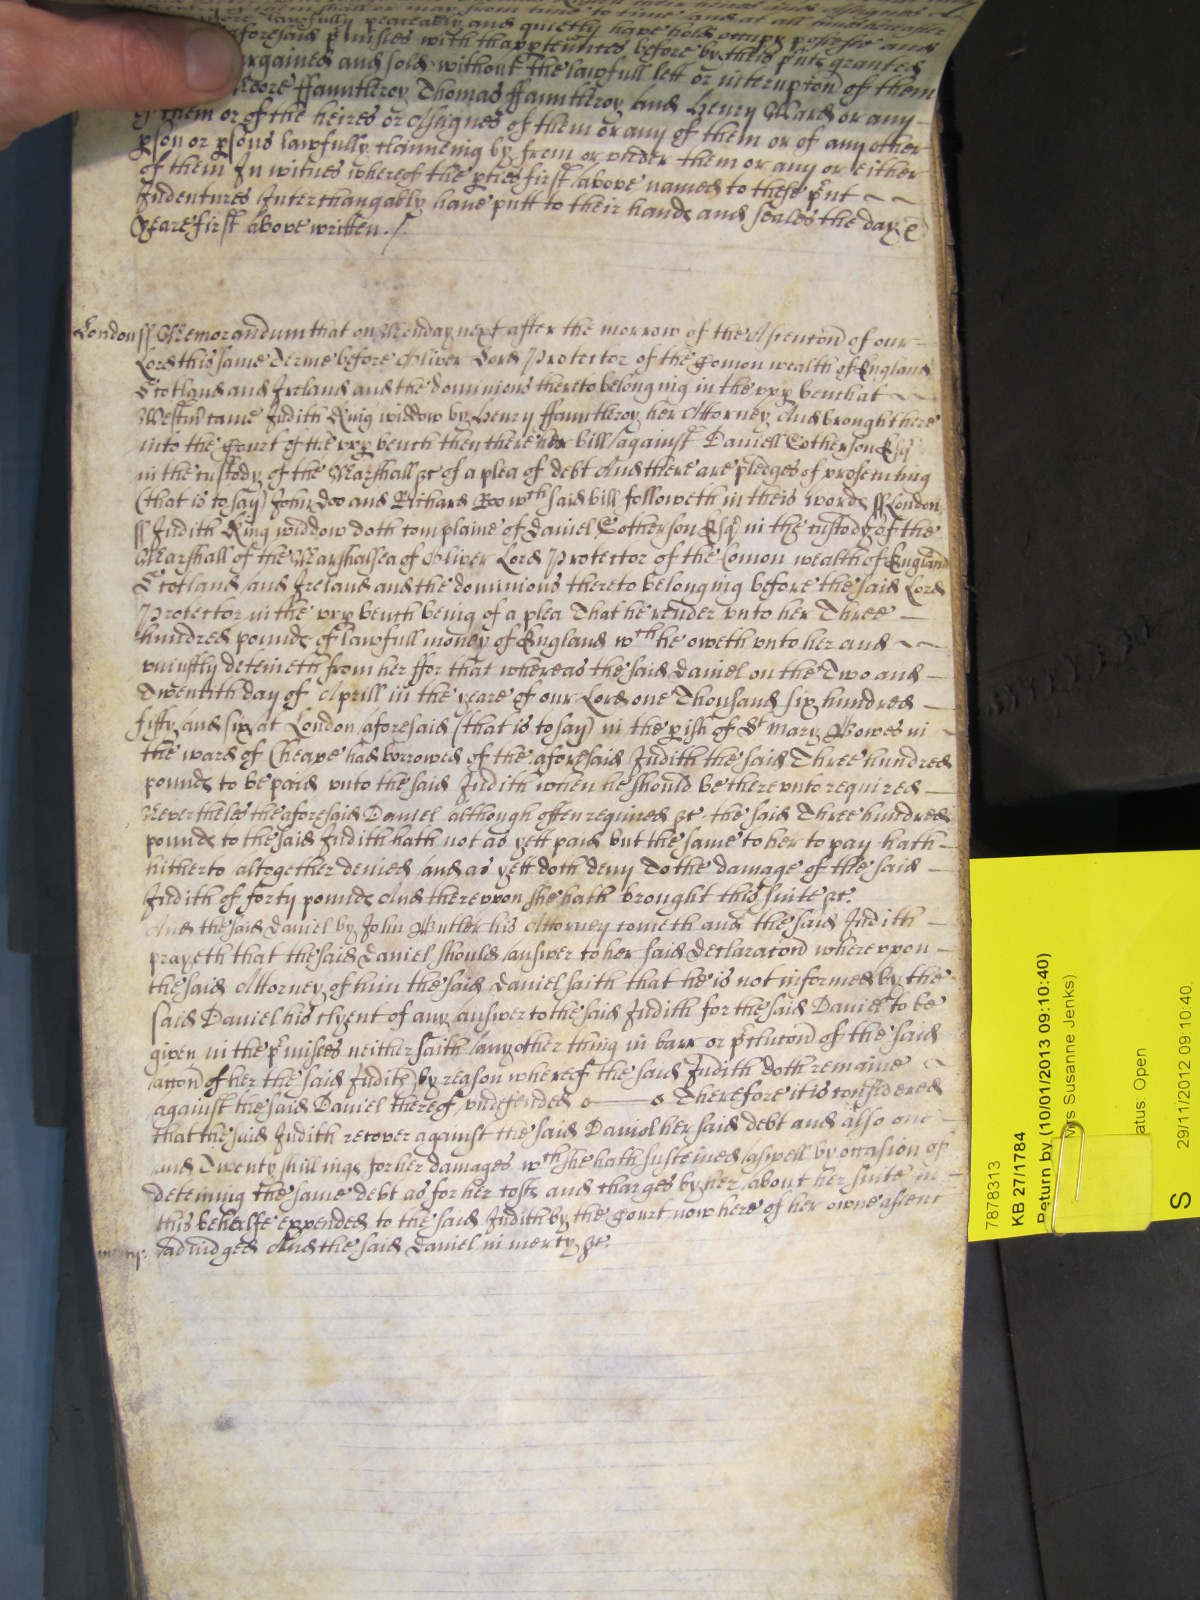 more lawfully peaceably and quietly have hold occupy possesse and
aforesaid p̱misses with thapptenntes before by theis p̱nts granted
argained and sold without the lawfull lett or interupcon of them
dore ffauntleroy Thomas ffauntleroy and Henry Ward or any
of them or of the heires or Assignes of them or any of them or of any other
p̱son or p̱sons lawfully clanneing by from or under them or any or either
of them In witnes whereof the p̱ties first above named to these p̱nt
Indentures Interchangably have putt to their hands and seales the day &
yeare first above written ./.
London ss Memorandum that on Monday next after the morrow of the Ascencon of our
Lord this same Terme before Oliver Lord Protector of the Comon wealth of England
Scotland and Ireland and the dominions thereto belonging in the upp̱ bench at
Westm̃ came Judith King widdow by Henry ffauntleroy her Attorney And brought here
into the Court of the upp̱ bench then there her bill against Daniell Cotherson Esq̃
in the custody of the Marshall &c of a plea of debt And there are pledges of prosecuting
(that is to say) John Doo and Richard Roo wᶜʰ said bill followeth in theis words ss London
ss Judith King widdow doth complaine of Daniel Cotherson Esq̃ in the custody of the
Marshall of the Marshallsea of Oliver Lord Protector of the Comon wealth of England
Scotland and Ireland and the dominions thereto belonging before the said Lord
Protector in the upp̱ bench being of a plea That he render unto her Three
hundred pounds of lawfull money of England wᶜʰ he oweth unto her and
uniustly deteineth from her ffor that whereas the said Daniel on the Two and
Twentith day of Aprill in the yeare of our Lord one Thousand six hundred
fifty and six at London aforesaid (that is to say) in the p̱ish of Sᵗ Mary Bowes in
the ward of Cheape had borrowed of the aforesaid Judith the said Three hundred
pounds to be paid unto the said Judith when he should be thereunto required
Nevertheles the aforesaid Daniel although often required &c the said Three hundred
pounds to the said Judith hath not as yett paid but the same to her to pay hath
hitherto altogether denied and as yett doth deny To the damage of the said
Judith of forty pounds And thereupon she hath brought this suite &c.
And the said Daniel by John Butler his Attorney cometh and the said Judith
prayeth that the said Daniel should answer to her said declaracon whereupon
the said Attorney of him the said Daniel saith that he is not informed by the
said Daniel his clyent of any answer to the said Judith for the said Daniel to be
given in the p̱misses neither saith any other thing in barr or p̱clucon of the said
accon of her the said Judith by reason whereof the said Judith doth remaine
against the said Daniel thereof undefended Therefore it is considered
that the said Judith recover against the said Daniel her said debt and also one
and Twenty shillings for her damages wᶜʰ she hath susteined aswell by occasion of
deteining the same debt as for her costs and charges by her about her suite in
this behalfe expended to the said Judith by the Court now here of her owne assent
adiudged And the said Daniel in mercy &c.
7878313
KB 27/1784
Return by (10/01/2013 09:10:40)
Mrs Susanne Jenks)
atus: Open
29/11/2012 09:10:40
S